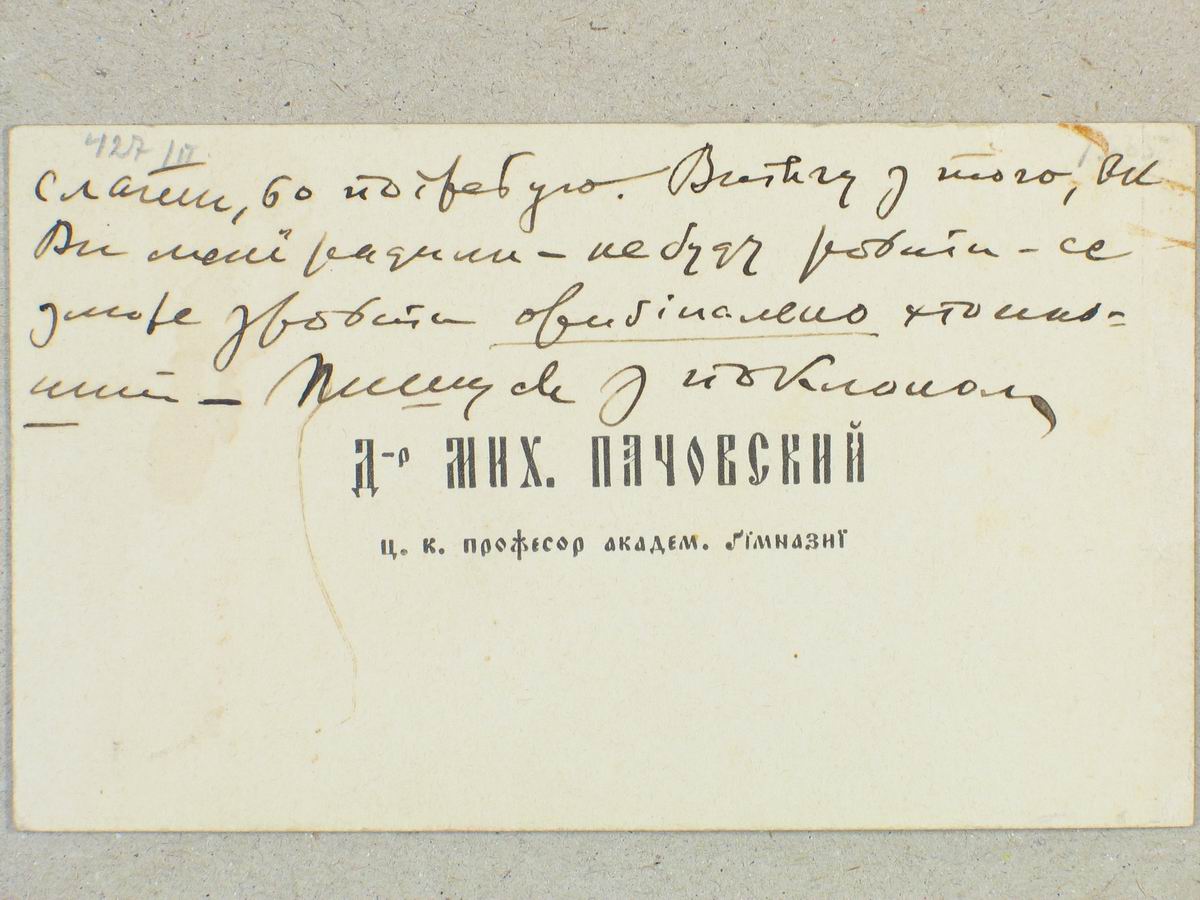 427/II
слати, бо потребую. Витягу з того, як
Ви мені радили – не буду робити – се
може зробити ориґінально хто инь-
ший – Пишуся з поклоном
Д-р МИХ. ПАЧОВСКИЙ
ц. к. професор академ. ґімназиї